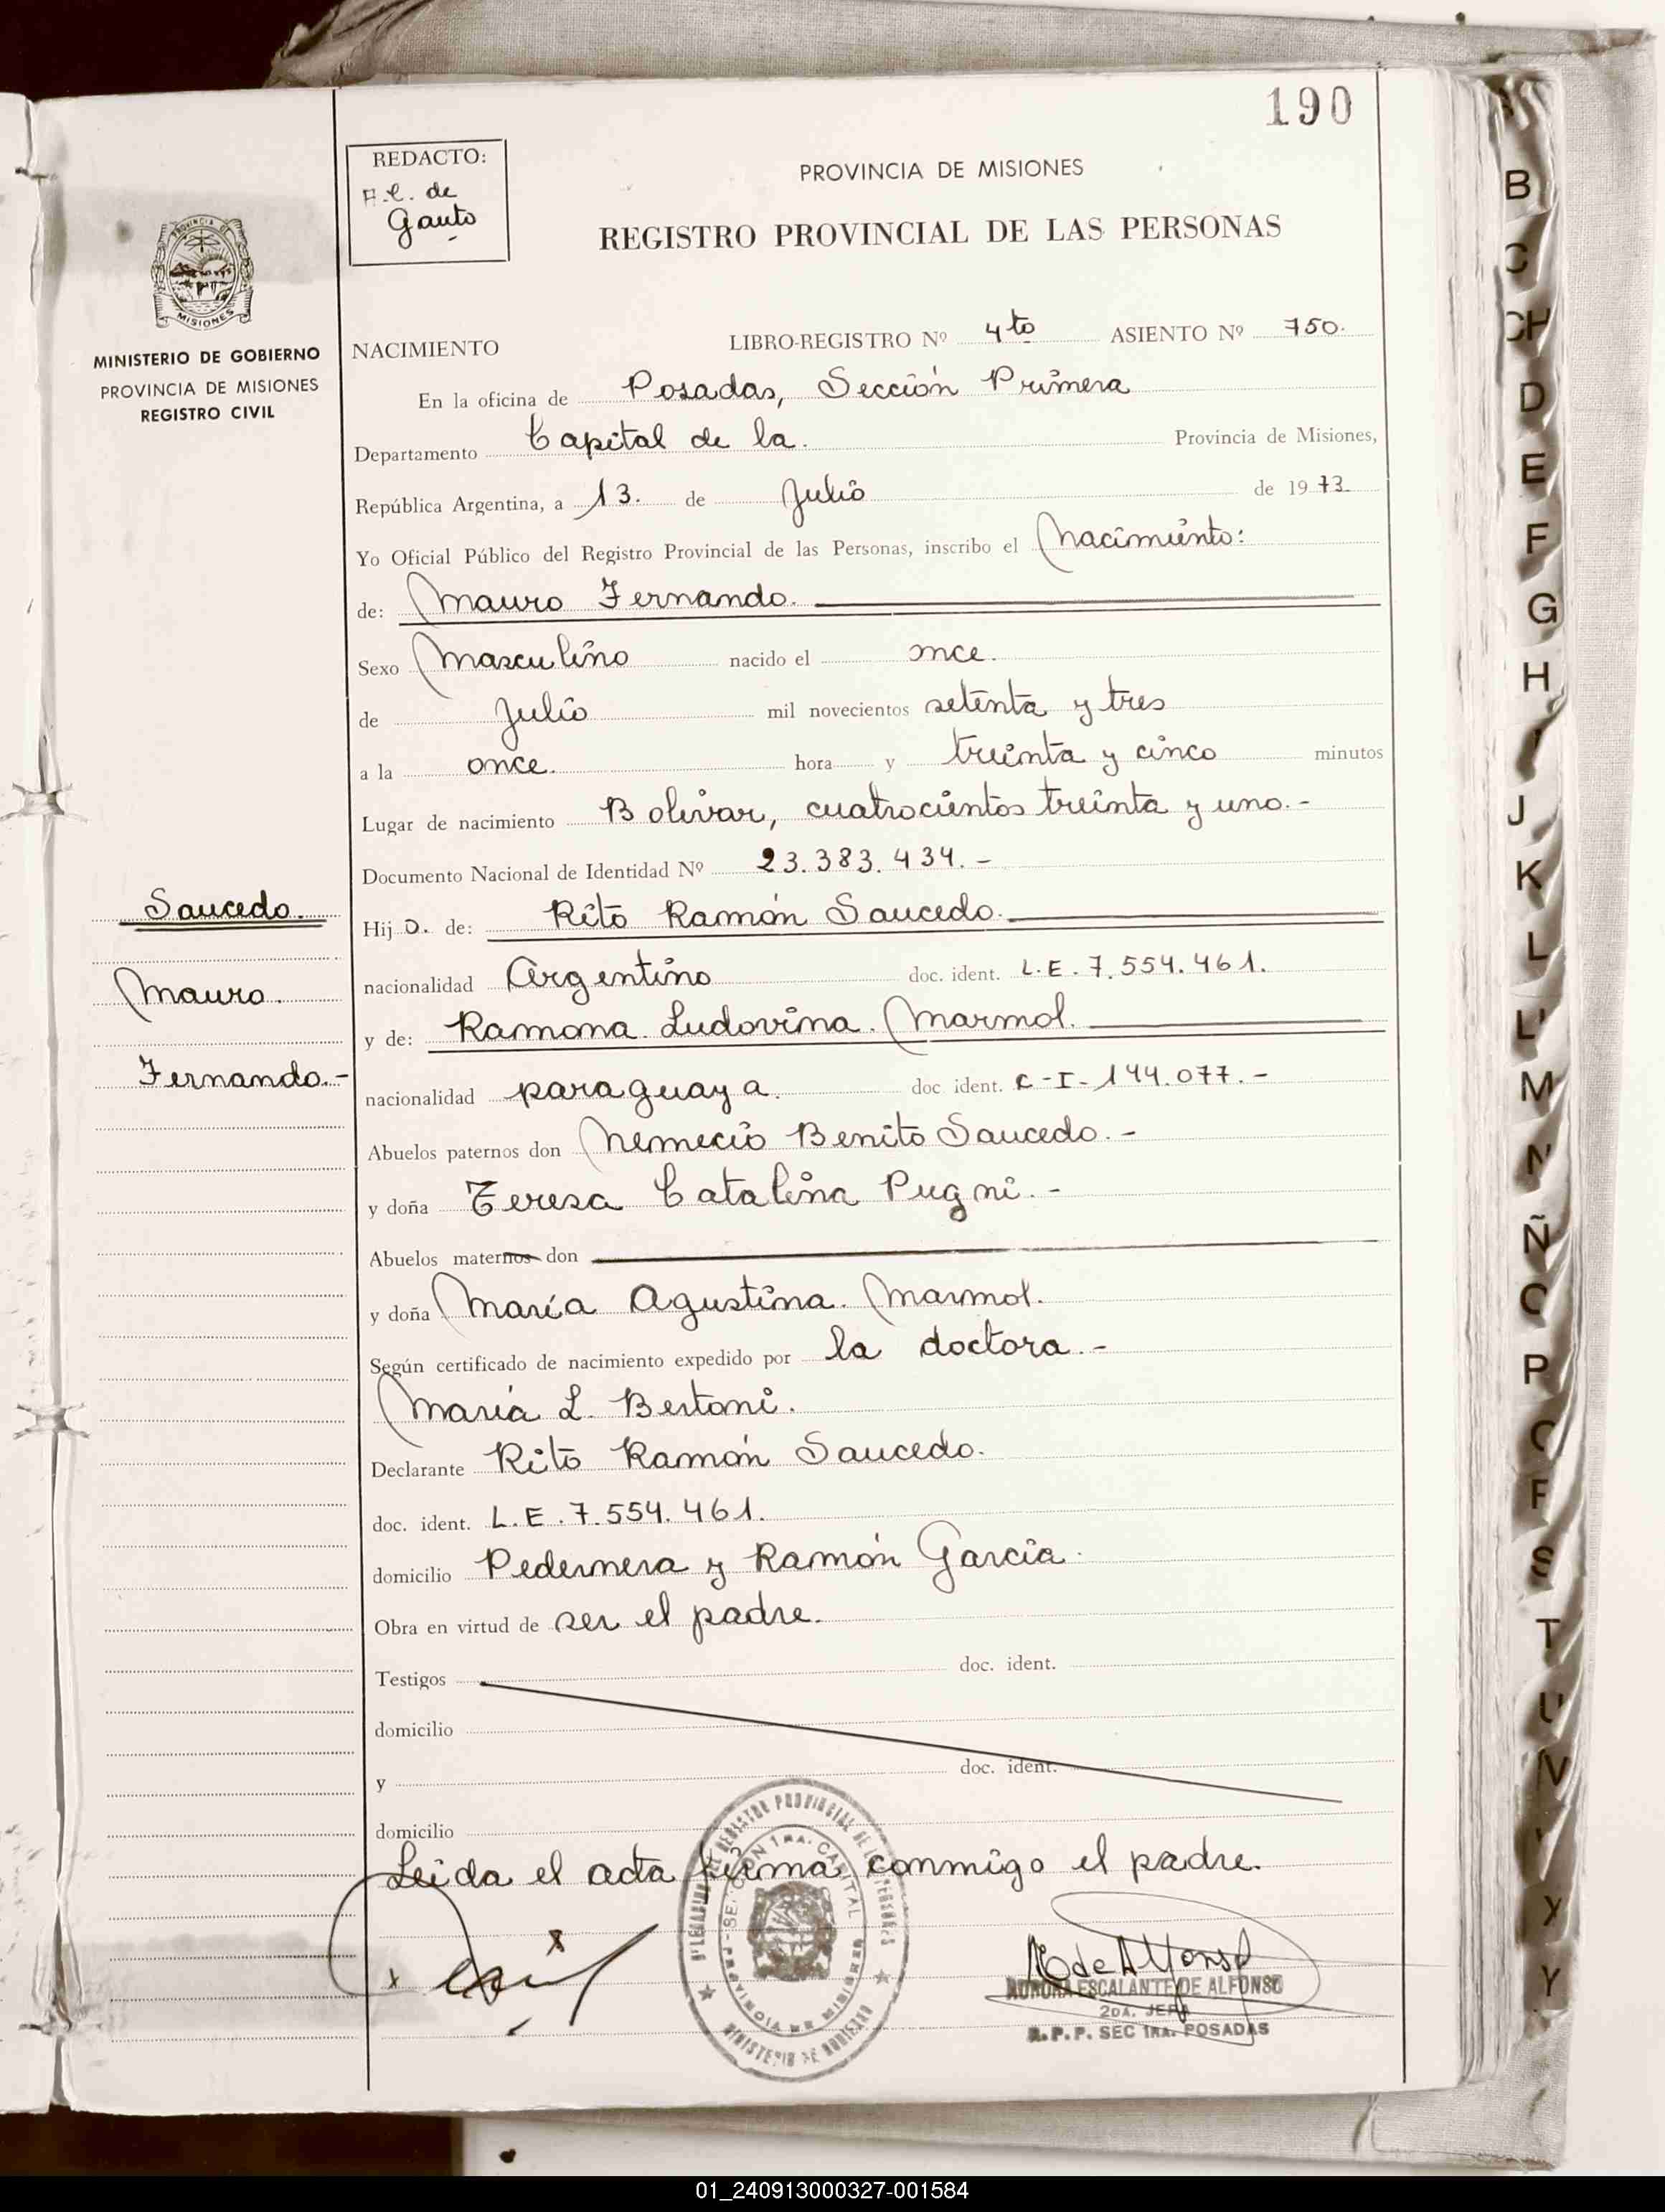 190
REDACTO:
A.E. de
Gauto
PROVINCIA DE MISIONES
REGISTRO PROVINCIAL DE LAS PERSONAS
PROVINCIA DE
MISIONES
MINISTERIO DE GOBIERNO
PROVINCIA DE MISIONES
REGISTRO CIVIL
NACIMIENTO LIBRO-REGISTRO Nº 4to ASIENTO Nº 750.
En la oficina de Posadas, Sección Primera
Departamento Capital de la. Provincia de Misiones,
República Argentina, a 13. de Julio de 1973
Yo Oficial Público del Registro Provincial de las Personas, inscribo el Nacimiento:
de: Mauro Fernando.
Sexo Masculino nacido el once.
de Julio mil novecientos setenta y tres
a la once. hora y treinta y cinco minutos
Lugar de nacimiento Bolivar, cuatrocientos treinta y uno.-
Documento Nacional de Identidad Nº 23.383.434.-
Saucedo.
Mauro.
Fernando.-
Hij o. de: Rito Ramón Saucedo.
nacionalidad Argentino doc. ident. L.E. 7.554.461.
y de: Ramona Ludovina. Marmol.
nacionalidad paraguaya. doc ident. C-I-144.077.-
Abuelos paternos don Nemecio Benito Saucedo.-
y doña Teresa Catalina Pugni.-
Abuelos maternos don
y doña María Agustina. Marmol.
Según certificado de nacimiento expedido por la doctora.-
María L. Bertoni.
Declarante Rito Ramón Saucedo.
doc. ident. L.E. 7.554.461.
domicilio Pedernera y Ramón García.
Obra en virtud de ser el padre.
Testigos doc. ident.
domicilio
y doc. ident.
domicilio
Leida el acta firma conmigo el padre.
A de Alfonso
AURORA ESCALANTE DE ALFONSO
2DA. JEFA
R.P.P. SEC 1RA. POSADAS
B
C
CH
D
E
F
G
H
I
J
K
L
LL
M
N
Ñ
O
P
Q
R
S
T
U
V
X
Y
01_240913000327-001584